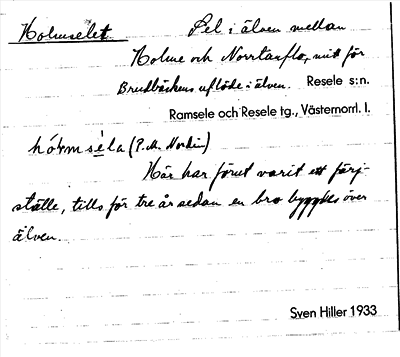 Holmselet Sel i älven mellan
Holme och Norrtanflo, mitt för
Brudbäckens utlöde i älven. Resele s:n.
Ramsele och Resele tg., Västernorrl. l.
hólmsèla (P. M. Nordin)
Här har förut varit ett färj-
ställe, tills för tre år sedan en bro byggdes över
älven.
Sven Hiller 1933